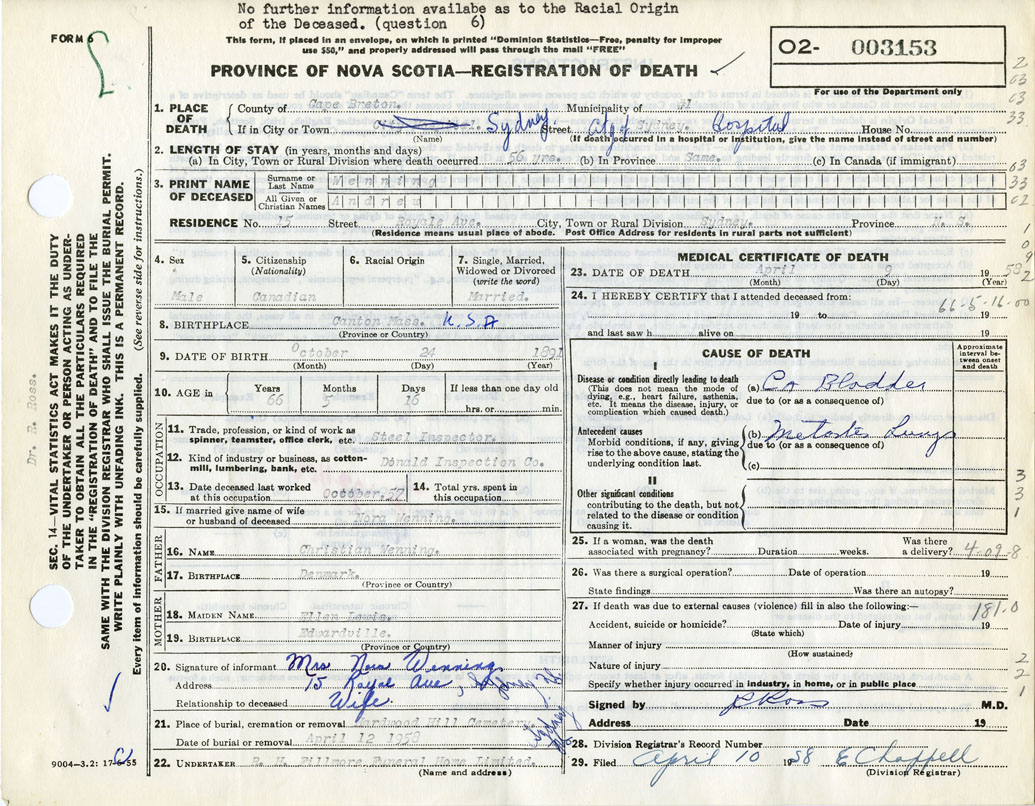 No further information availabe as to the Racial Origin
of the Deceased. (question 6)
FORM 6
This form, if placed in an envelope, on which is printed "Dominion Statistics—Free, penalty for improper
use $50," and properly addressed will pass through the mail "FREE"
O2- 003153
PROVINCE OF NOVA SCOTIA—REGISTRATION OF DEATH
For use of the Department only
1. PLACE OF DEATH
County of Cape Breton. Municipality of
If in City or Town Sydney Street City of Sydney. Hospital House No.
(Name) (If death occurred in a hospital or institution, give the name instead of street and number)
2. LENGTH OF STAY (in years, months and days)
(a) In City, Town or Rural Division where death occurred 56 yrs. (b) In Province Same. (c) In Canada (if immigrant)
3. PRINT NAME OF DECEASED
Surname or Last Name Wenning
All Given or Christian Names Andrew
RESIDENCE No. 15 Street Royale Ave. City, Town or Rural Division Sydney. Province N. S.
(Residence means usual place of abode. Post Office Address for residents in rural parts not sufficient)
4. Sex Male
5. Citizenship (Nationality) Canadian
6. Racial Origin
7. Single, Married, Widowed or Divorced (write the word) Married.
8. BIRTHPLACE Canton Mass. U.S.A
(Province or Country)
9. DATE OF BIRTH October 24 1891
(Month) (Day) (Year)
10. AGE in Years 66 Months 5 Days 16 If less than one day old
hrs. or min.
OCCUPATION
11. Trade, profession, or kind of work as spinner, teamster, office clerk, etc. Steel Inspector.
12. Kind of industry or business, as cotton-mill, lumbering, bank, etc. Donald Inspection Co.
13. Date deceased last worked at this occupation October 57
14. Total yrs. spent in this occupation
15. If married give name of wife or husband of deceased Nora Wenning.
FATHER
16. NAME Christian Wenning.
17. BIRTHPLACE Denmark.
(Province or Country)
MOTHER
18. MAIDEN NAME Ellen Lewis.
19. BIRTHPLACE Edwardville.
(Province or Country)
20. Signature of informant Mrs Nora Wenning
Address 15 Royal Ave, Sydney N.S.
Relationship to deceased Wife.
21. Place of burial, cremation or removal Hardwood Hill Cemetery
Sydney
Date of burial or removal April 12 1958
22. UNDERTAKER R. H. Fillmore Funeral Home Limited.
(Name and address)
9004-3.2: 17-6-55
MEDICAL CERTIFICATE OF DEATH
23. DATE OF DEATH April 9 1958
(Month) (Day) (Year)
24. I HEREBY CERTIFY that I attended deceased from:
66-5-16-00
19 to 19
and last saw h alive on 19
CAUSE OF DEATH
Approximate interval between onset and death
I
Disease or condition directly leading to death
(This does not mean the mode of dying, e.g., heart failure, asthenia, etc. It means the disease, injury, or complication which caused death.)
(a) Ca Bladder
due to (or as a consequence of)
Antecedent causes
Morbid conditions, if any, giving rise to the above cause, stating the underlying condition last.
(b) Metastes Lungs
due to (or as a consequence of)
(c)
II
Other significant conditions
contributing to the death, but not related to the disease or condition causing it.
25. If a woman, was the death associated with pregnancy? Duration weeks. Was there a delivery?
4-09-8
26. Was there a surgical operation? Date of operation 19
State findings Was there an autopsy?
27. If death was due to external causes (violence) fill in also the following:—
181.0
Accident, suicide or homicide? Date of injury 19
(State which)
Manner of injury
(How sustained)
Nature of injury
Specify whether injury occurred in industry, in home, or in public place
Signed by R Ross M.D.
Address Date 19
28. Division Registrar's Record Number
29. Filed April 10 1958 E Chappell
(Division Registrar)
SEC. 14—VITAL STATISTICS ACT MAKES IT THE DUTY
OF THE UNDERTAKER OR PERSON ACTING AS UNDER-
TAKER TO OBTAIN ALL THE PARTICULARS REQUIRED
IN THE "REGISTRATION OF DEATH" AND TO FILE THE
SAME WITH THE DIVISION REGISTRAR WHO SHALL ISSUE THE BURIAL PERMIT.
WRITE PLAINLY WITH UNFADING INK. THIS IS A PERMANENT RECORD.
Every item of information should be carefully supplied. (See reverse side for instructions.)
Dr. R. Ross.
2
03
03
33
63
33
01
1
0
9
2
3
3
1
2
2
1